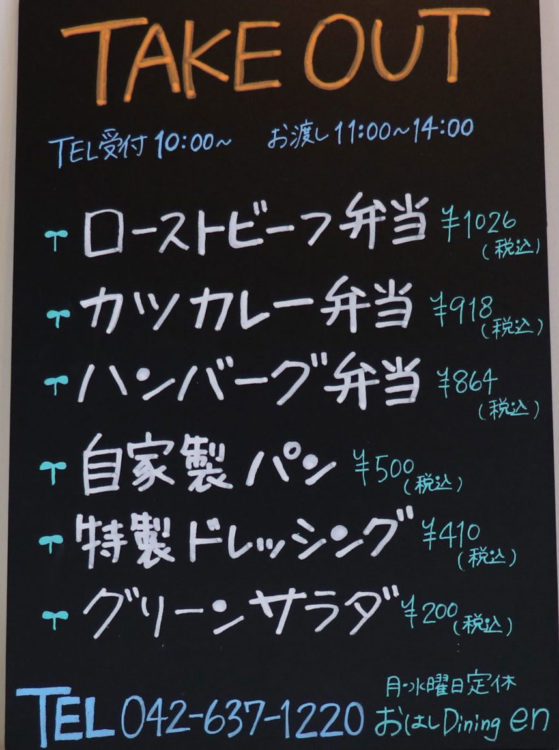 TAKE OUT
TEL受付 10:00~ お渡し 11:00~14:00
ローストビーフ弁当 ¥1026
(税込)
カツカレー弁当 ¥918
(税込)
ハンバーグ弁当 ¥864
(税込)
自家製パン ¥500
(税込)
特製ドレッシング ¥410
(税込)
グリーンサラダ ¥200
(税込)
月・水曜日定休
TEL 042-637-1220 おはしDining en